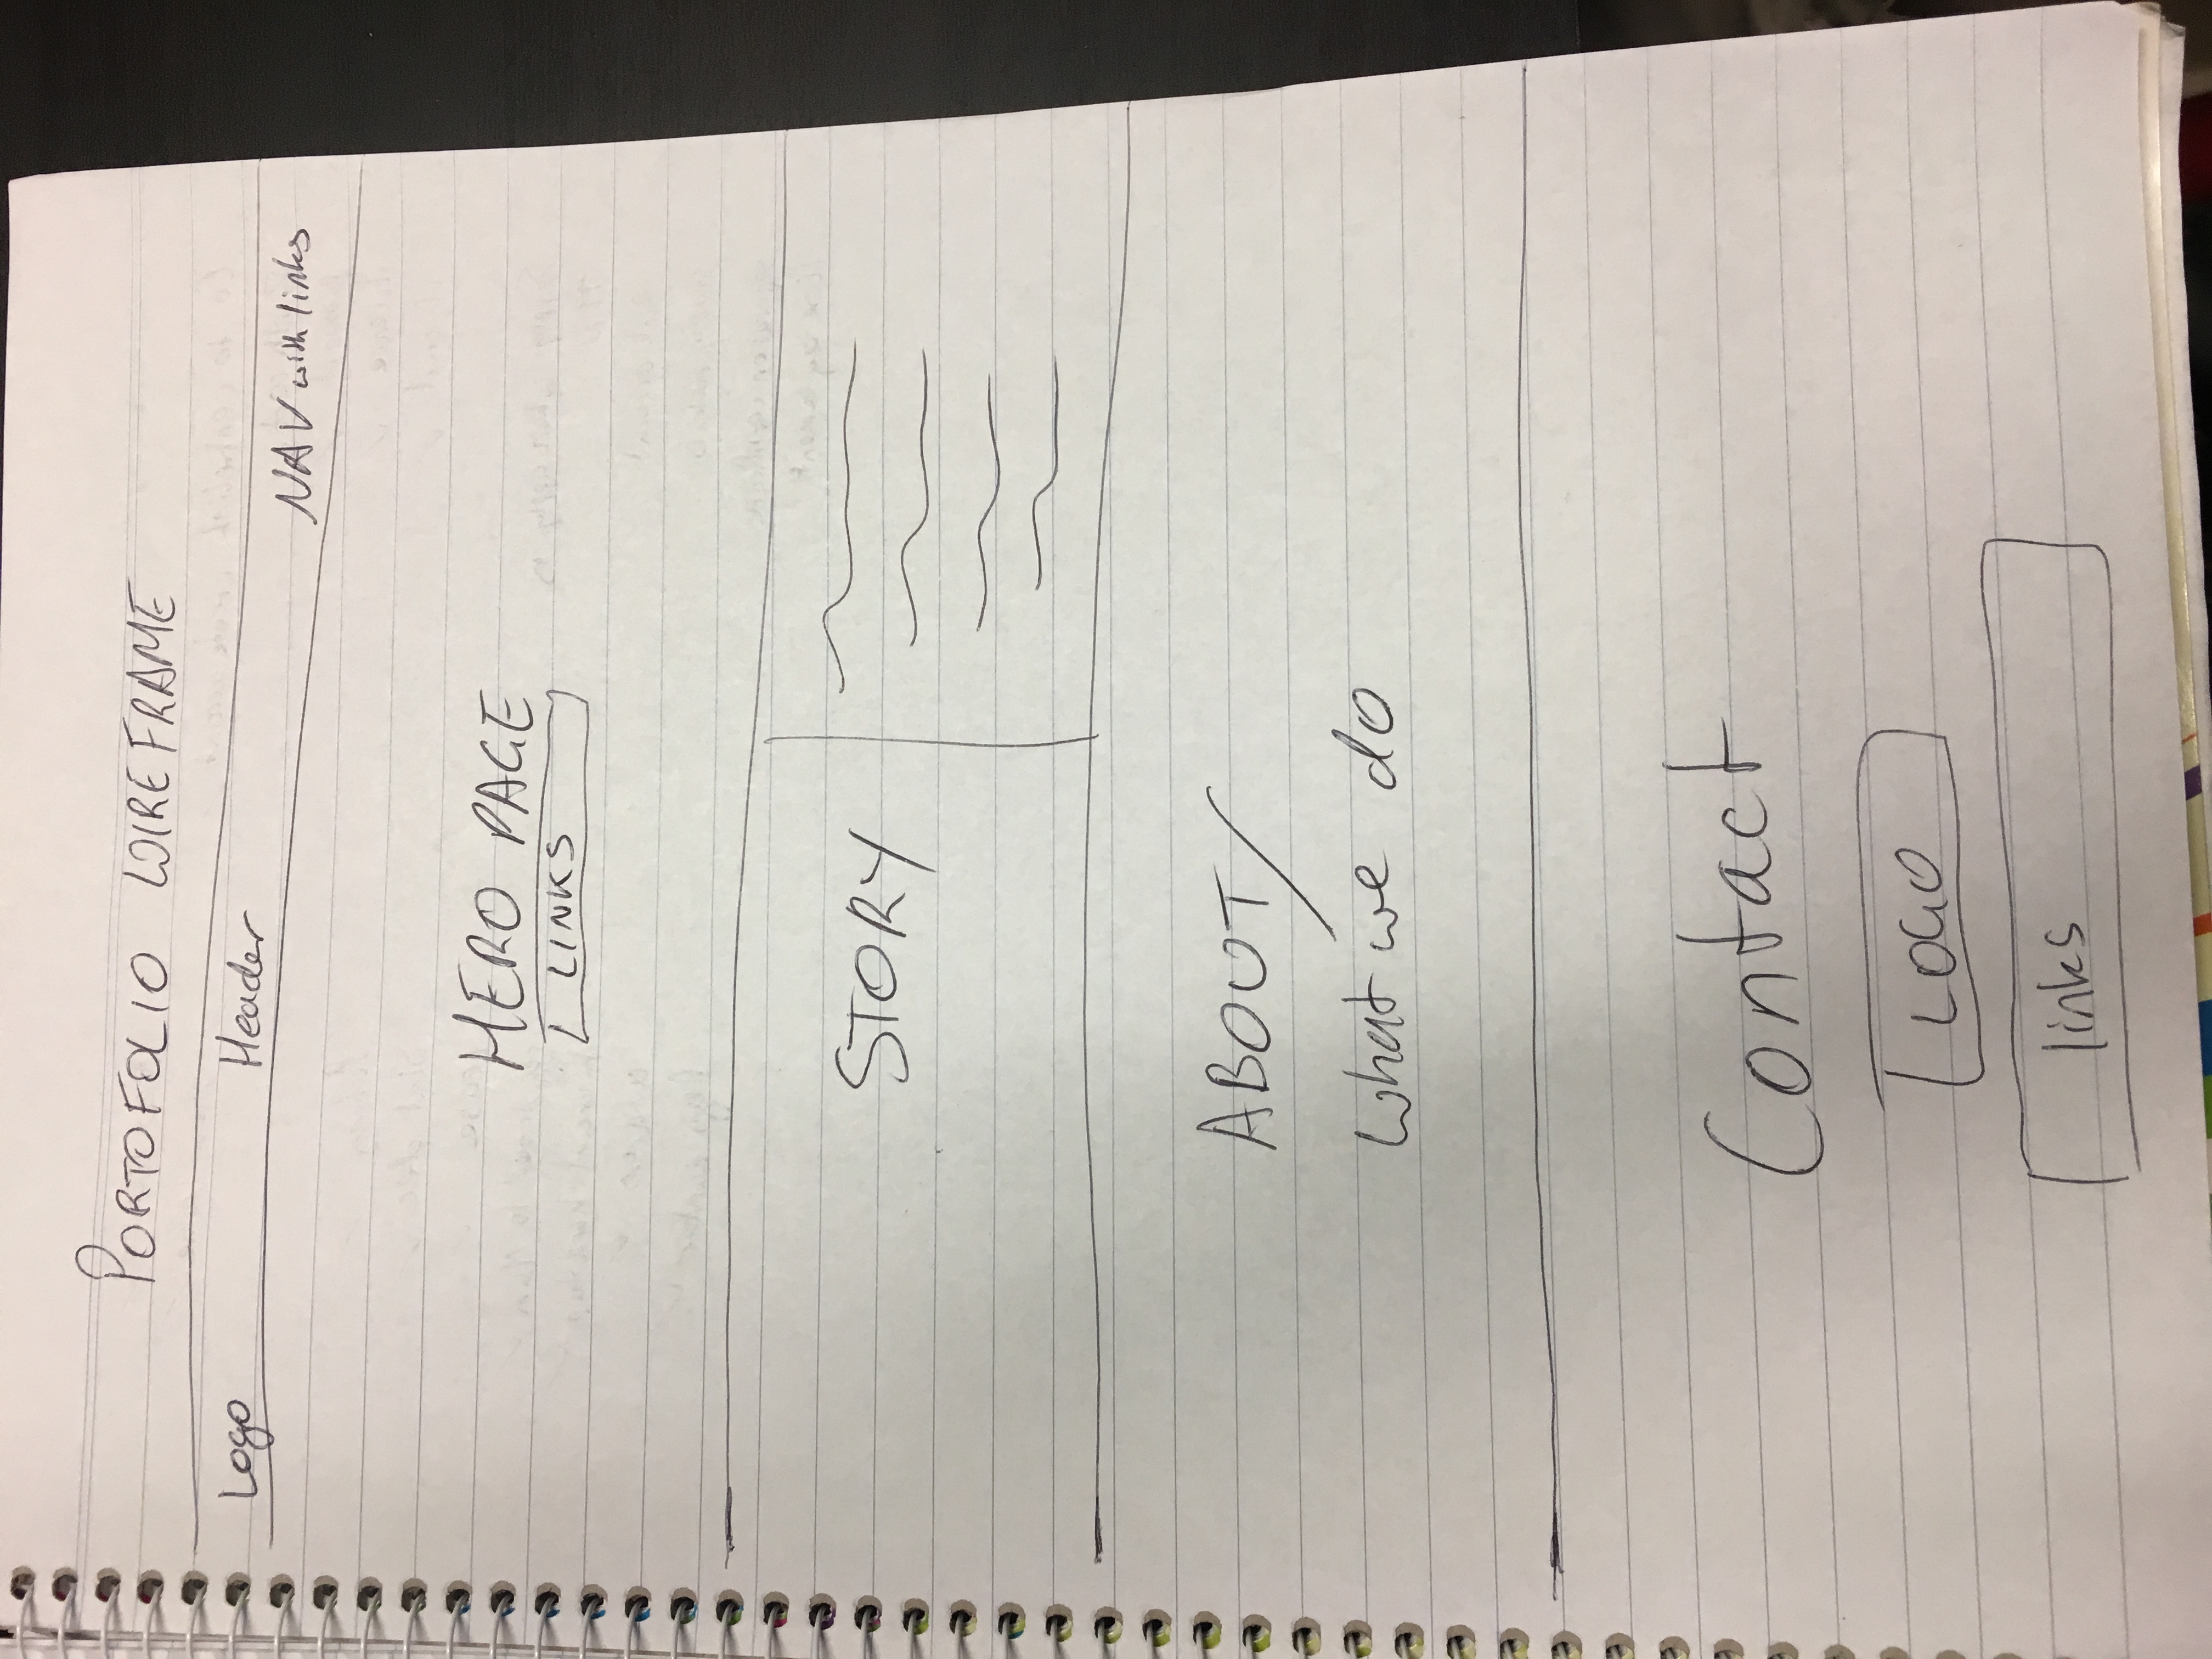 PORTOFOLIO WIREFRAME
Logo Header NAV with links
HERO PAGE
LINKS
STORY
ABOUT/
what we do
Contact
LOGO
links